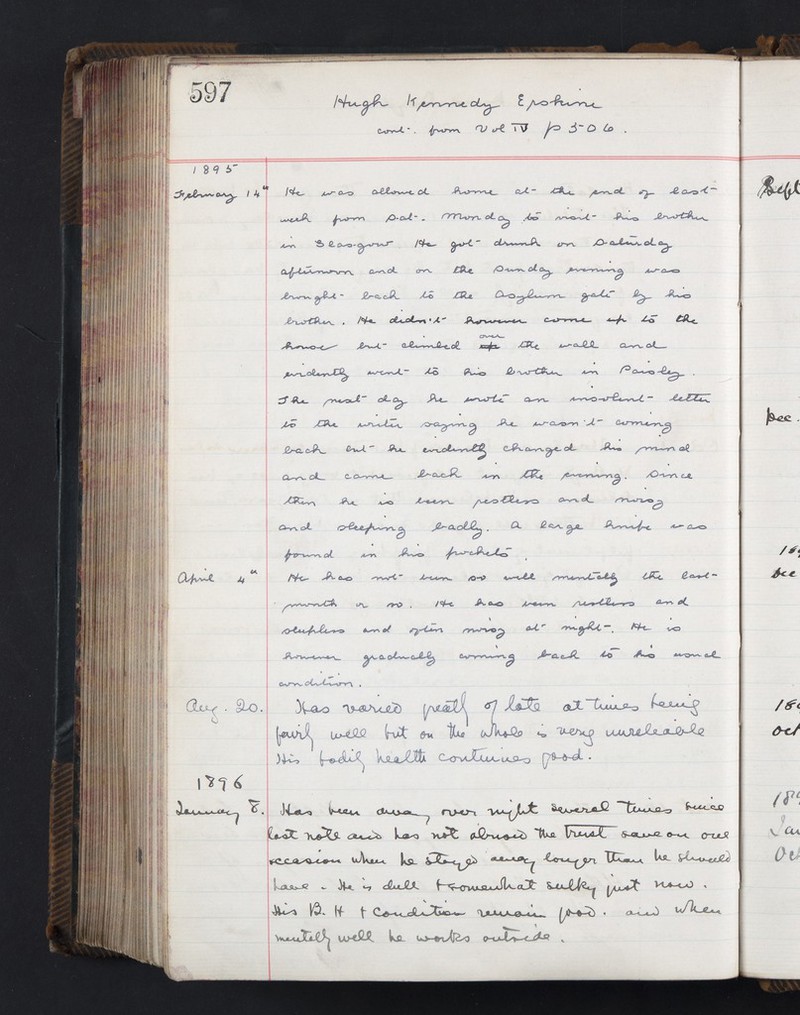 597
Hugh Kennedy Erskine
cont. from Vol IV p 506.
1895
February 14th He was allowed home at the end of last
week from Sat. - Monday to visit his brother
in Glasgow. He got drunk on Saturday
afternoon and on the Sunday evening was
brought back to the Asylum gate by his
brother. He didn't however come up to the
house but climbed over the wall and
evidently went to his brother in Paisley.
The next day he wrote an insolent letter
to the writer saying he wasn't coming
back but he evidently changed his mind
and came back in the evening. Since
then he is been restless and noisy
and sleeping badly. A large knife was
found in his pockets.
April 4th He has not been so well mentally the last
month or so. He has been restless and
sleepless and often noisy at night. He is
however gradually coming back to his usual
condition.
Aug. 20. Has varied greatly of late at times being
fairly well but on the whole is very unreliable
His bodily health continues good.
1896
January 8. Has been away over night several times since
last note and has not abused the trust save on one
occasion when he stayed away longer than he should
have. He is dull & somewhat sulky just now.
His B. H & condition remain good. and when
mentally well he works outside.
Sept
Dec.
Dec
Oct
Jan
Oct